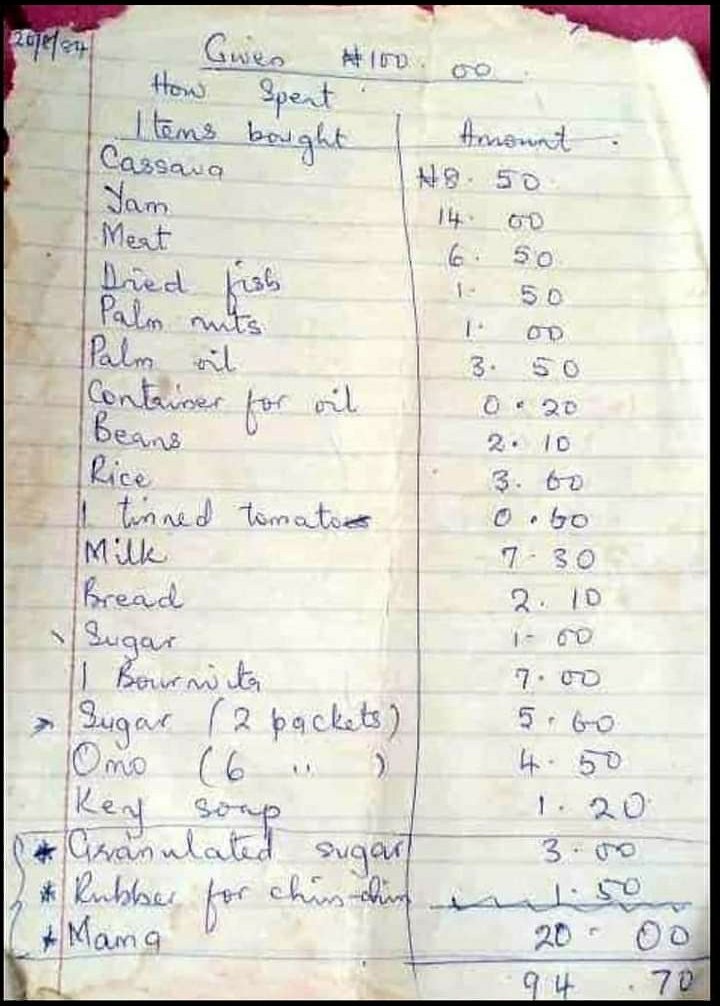 Given ₦100. 00
How Spent
Items bought Amount.
Cassava ₦8. 50
Yam 14. 00
Meat 6. 50
Dried fish 1. 50
Palm nuts 1. 00
Palm oil 3. 50
Container for oil 0.20
Beans 2. 10
Rice 3. 60
1 tinned tomato 0.60
Milk 7-30
Bread 2. 10
Sugar 1-00
1 Bournvita 7.00
Sugar (2 packets) 5.60
Omo (6 ") 4.50
Key soap 1.20
* Granulated sugar 3.00
* Rubber for chin-chin 1.50
* Mama 20. 00
94 .70